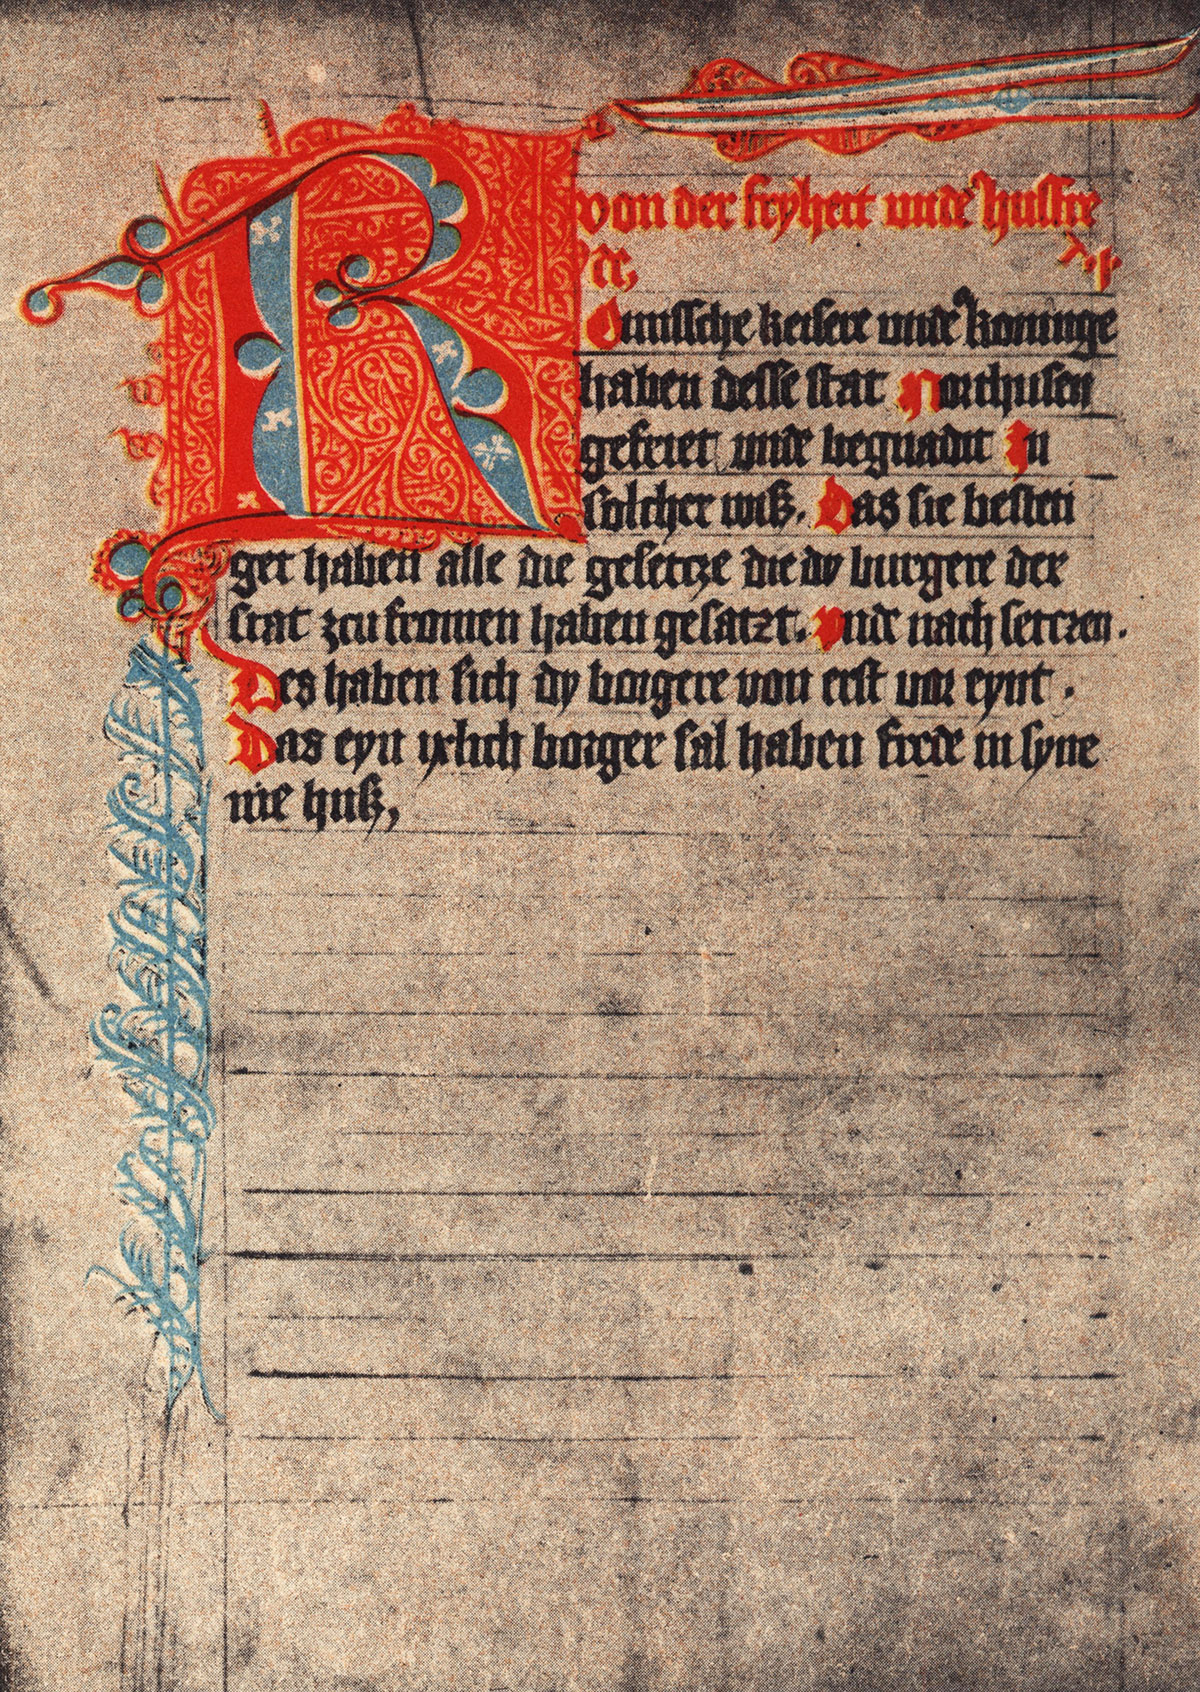 Von der fryheit unde husfre
de,
R Omissche keisere unde koninge
haben desse stat Northusen
gefriet unde begnadit In
solcher wiß. Das sie besteti
get haben alle die gesetcze die dy burgere der
stat zcu fromen haben gesatzt. Unde nach setczen.
Des haben sich dy borgere von erst vor eynt.
Das eyn ixlich borger sal haben frede in syne
me huß,